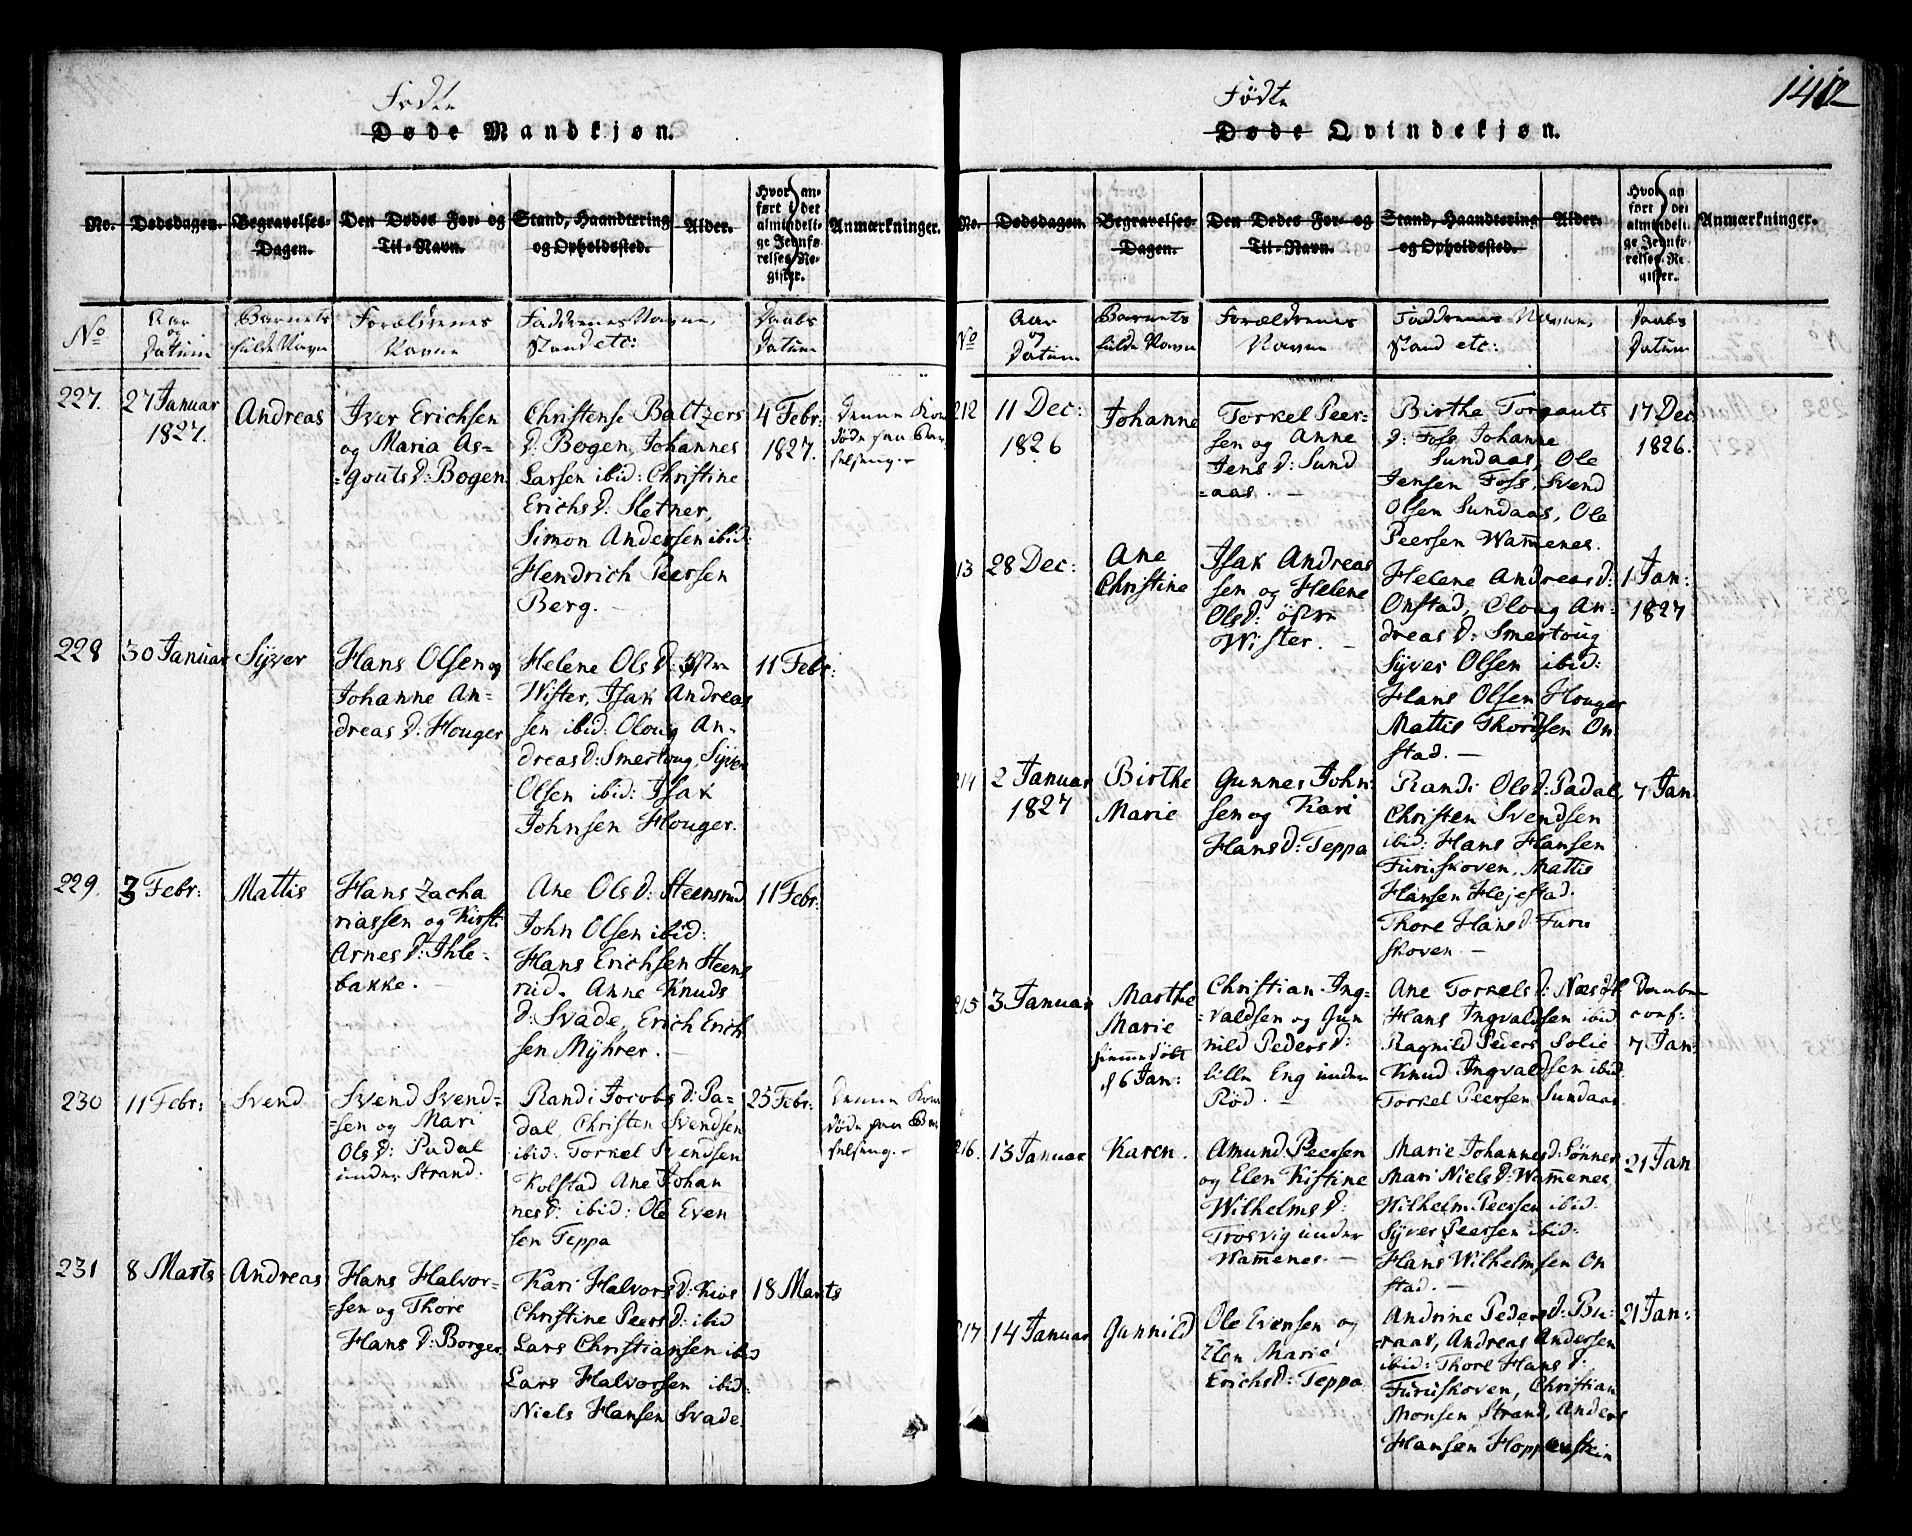 Fødte
Døde Mandkjøn.
No.
Dødsdagen.
Begravelses-
Dagen.
Den Dødes For- og
Til-Navn.
Stand, Haandtering
og Opholdssted.
Alder.
Hvor an-
ført i det
almindeli-
ge Jevnfø-
relses-Re-
gister.
Anmærkninger.
No
Aar
og
Datum
Barnets
fulde Navn
Forældrenes
Navne
Faddrenes Navne,
Stand etc:
Daabs
Datum
227.
27 Januar
1827.
Andreas
Iver Erichsen
og Maria As-
=gouts D: Bogen
Christense Baltzers
D: Bogen, Johannes
Larsen ibid: Christine
Erichs D: Sletner,
Simon Andersen ibid:
Hendrich Peersen
Berg.
4 Febr:
1827.
Denne Kone
døde paa Bar
selseng.-
228
30 Januar
Syver
Hans Olsen og
Johanne An-
dreas D: Houger
Helene Ols D: Østre
Wister, Isak Andreas
sen ibid: Oloug An-
dreas D: Smertoug, Syver
Olsen ibid: Isak
Johnsen Houger.
11 Febr:
229.
3 Febr:
Mattis
Hans Zacha
riassen og Kirsti
Arnes D: Ihle-
bakke.
Ane Ols D: Steensrud
John Olsen ibid:
Hans Erichsen Steens
rud. Anne Knuds
D: Svade, Erich Erich
sen Myhrer.
11 Febr:
230
11 Febr:
Svend
Svend Svend-
=sen og Mari
Ols D: Padal
under Strand.
Randi Jacobs D: Pa-
dal, Christen Svendsen
ibid: Torkel Svendsen
Kolstad Ane Johan
nes D: ibid: Ole Even
sen Teppa
25 Febr:
Denne Kone
døde paa Bar
selseng.-
231
8 Marts
Andreas
Hans Halvor-
=sen og Thore
Hans D: Borger
Kari Halvors D: Kios
Christine Peers D: ibid
Lars Christiansen ibid
Lars Halvorsen ibid:
Niels Hansen Svade.
18 Marts
142
Fødte
Døde Qvindekjøn.
No.
Dødsdagen.
Begravelses-
Dagen.
Den Dødes For- og
Til-Navn.
Stand, Haandtering
og Opholdssted.
Alder.
Hvor an
ført i det
almindeli-
ge Jevnfø-
relses-Re-
gister.
Anmærkninger.
No
Aar
og
Datum
Barnets
fulde Navn
Forældrenes
Navne
Faddrenes Navne,
Stand etc:
Daabs
Datum
212
11 Dec:
1826
Johanne
Torkel Peer-
sen og Anne
Jens D: Sund
=aas.
Birthe Torgauts
D: Foss Johanne
Sundaas, Ole
Jensen Foss, Svend
Olsen Sundaas, Ole
Peersen Wam̅enes.
17 Dec
1826.
13
28 Dec:
Ane
Christine
Isak Andreas
sen og Helene
Ols D: østre
Wister.
Helene Andreas D:
Onstad, Oloug An-
dreas D: Smertoug
Syver Olsen ibid:
Hans Olsen Houger
Mattis Thordsen On
stad.
1 Jan:
1827
14
2 Januar
1827
Birthe
Marie
Gunnes John
sen og Kari
Hans D: Teppa
Randi Ols D: Padal,
Christen Svendsen
ibid: Hans Hansen
Furuskoven, Mattis
Hansen Hejestad.
Thore Hans D: Furu
skoven
7 Jan
215
3 Januar
Marthe
Marie
hjemmedøbt
d 6 Jan:
Christian Ing-
=valdsen og Gun
nild Peders D:
lille Eng under
Rød.
Ane Torkels D: Næs
Hans Ingvaldsen ibid
Ragnild Peders Solie
Knud Ingvaldsen ibid
Torkel Peersen Sundaas
Daaben
conf:
7 Jan:
216.
13 Januar
Karen.
Amund Peersen
og Elen Kistine
Wilhelms D:
Trosvig under
Wam̅enes.
Marie Johannes D: Sønner
Mari Niels D: Wam̅enes,
Wilhelm Peersen ibid:
Syver Peersen ibid:
Hans Wilhelmsen On
stad.
21 Jan
217
14 Januar
Gunnild
Ole Evensen og
Elen Marie
Erichs D: Teppa
Andrine Peders D: Bu-
raas, Andreas Andersen
ibid: Thore Hans D:
Furuskoven, Christian
Monsen Strand, Anders
Hansen Hoppenstein
21 Jan: